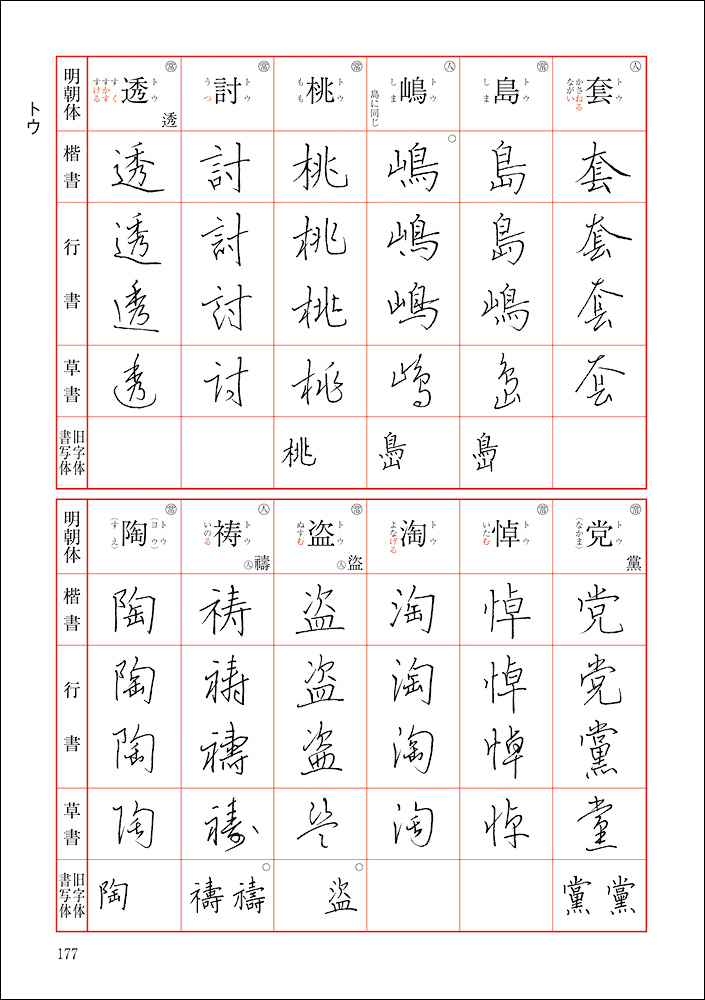 トウ
人
套
トウ
かさねる
ながい
套
套
套
套
常
島
トウ
しま
島
島
嶋
島
㠀
人
嶋
トウ
しま
島に同じ
○
嶋
嶋
嶋
嶋
㠀
常
桃
トウ
もも
桃
桃
桃
桃
桃
常
討
トウ
うつ
討
討
討
討
常
透
トウ
すく
すかす
すける
透
透
透
透
透
明朝体
楷書
行書
草書
旧字体
書写体
常
党
トウ
(なかま)
黨
党
党
黨
党
黨 黨
常
悼
トウ
いたむ
悼
悼
悼
悼
淘
トウ
よなげる
淘
淘
淘
淘
常
盗
トウ
ぬすむ
人盜
盗
盗
盗
盗
○
盜
人
祷
トウ
いのる
人禱
祷
祷
禱
祷
○
禱 禱
常
陶
トウ
(ヨウ)
(すえ)
陶
陶
陶
陶
陶
明朝体
楷書
行書
草書
旧字体
書写体
177